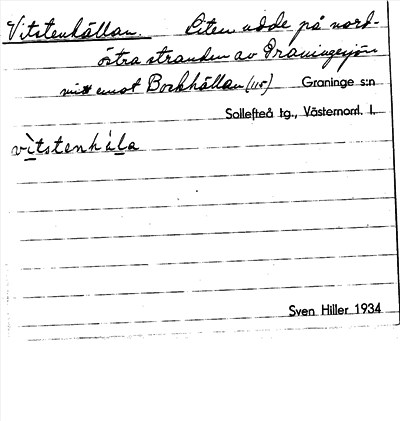 Vitstenhällan. Liten udde på nord-
östra stranden av Graningesjön
mitt emot Bockhällan (115) Graninge s:n
Sollefteå tg., Västernorrl. l.
vitstenhäla
Sven Hiller 1934